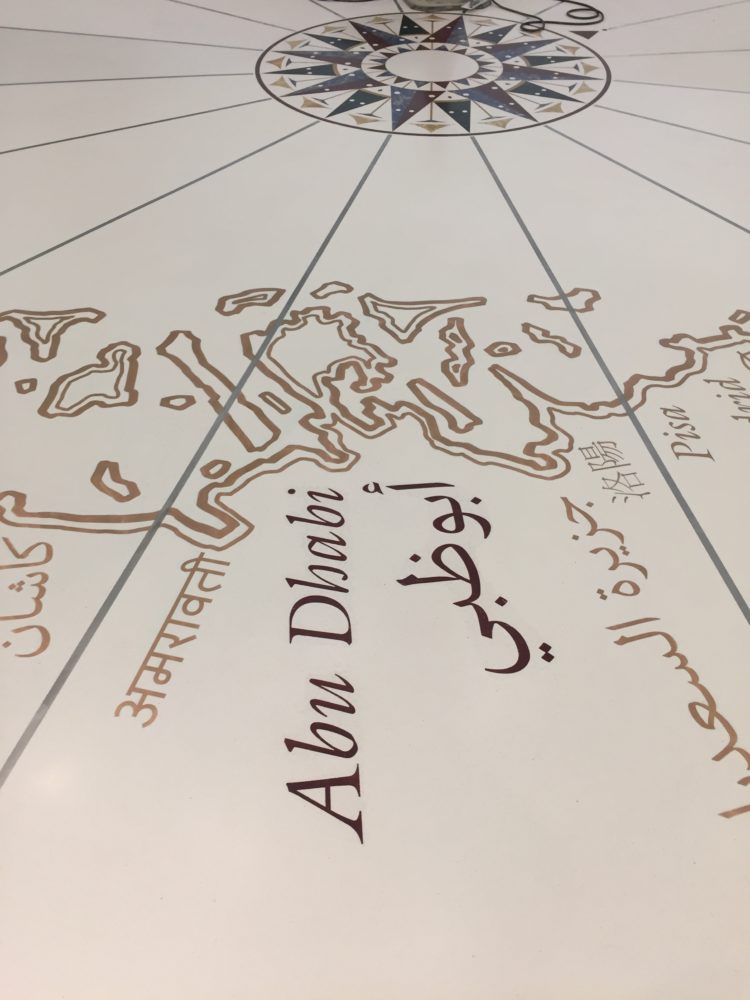 كاشان
अमरावती
Abu Dhabi
أبوظبي
جزيرة السعديا
洛陽
Pisa